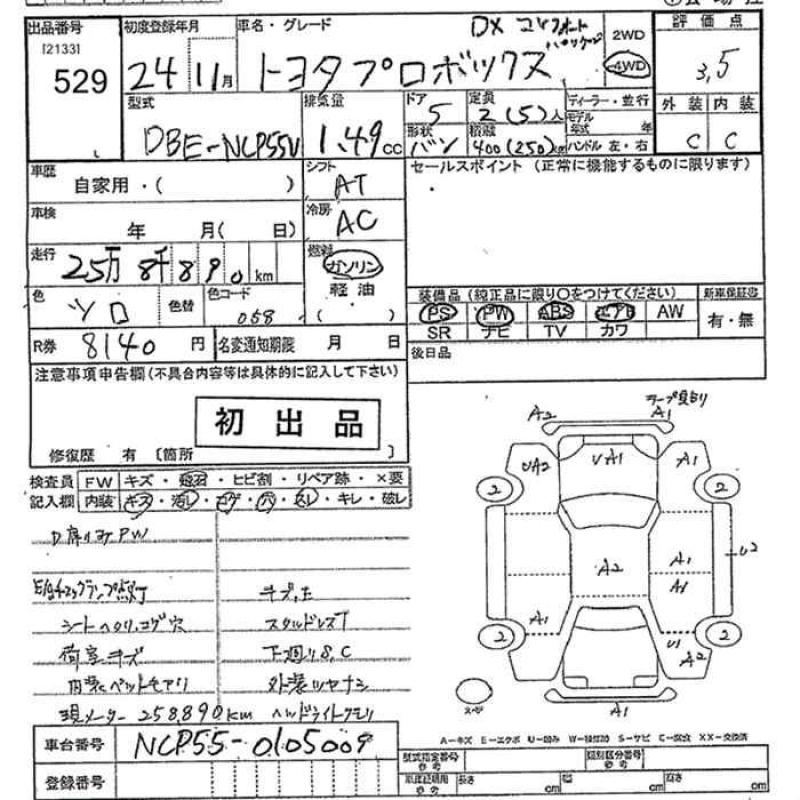 出品番号
[2133]
529
初度登録年月
24 11月
車名・グレード
DX コンフォート
パッケージ
トヨタプロボックス
2WD
4WD
評価点
3,5
型式
DBE-NCP55V
排気量
1.49cc
ドア
5
定員
2(5)人
ディーラー・並行
モデル
年式 年
外装 内装
C C
形状
バン
積蔵
400(250)kg
ハンドル 左・右
車歴
自家用・( )
シフト
AT
セールスポイント (正常に機能するものに限ります)
車検
年 月( 日)
冷房
AC
走行
25万8千890km
燃料
ガソリン
軽油
( )
色
シロ
色替
色コード
058
装備品 (純正品に限り○をつけてください)
新車保証書
PS PW ABS エアB AW
有・無
SR ナビ TV カワ
R券 8140円
名変通知期限 月 日
後日品
注意事項申告欄(不具合内容等は具体的に記入して下さい)
初出品
修復歴 有 〔箇所 〕
検査員
記入欄
FW キズ・飛石・ヒビ割・リペア跡・×要
内装 キズ・汚レ・コゲ・穴・スレ・キレ・破レ
D席リヨPW
E/gチェックランプ点灯
シートヘタリ、コゲ穴
荷室キズ
内装ペットモアリ
現メーター258,890km
スタッドレスT
下廻りS,C
外装ツヤナシ
ヘッドライトクモリ
A2 A1
UA2 UA1 A1
2 2
U2
A2 A1
A1
A1
2 2
U1
A2
A1
A-キズ E-エクボ U-凹み W-補修跡 S-サビ C-腐食 XX-交換済
車台番号 NCP55-0105009
登録番号
型式指定番号
参考
類別区分番号
参考
車庫証明用
参考
長さ cm
幅 cm
高さ cm